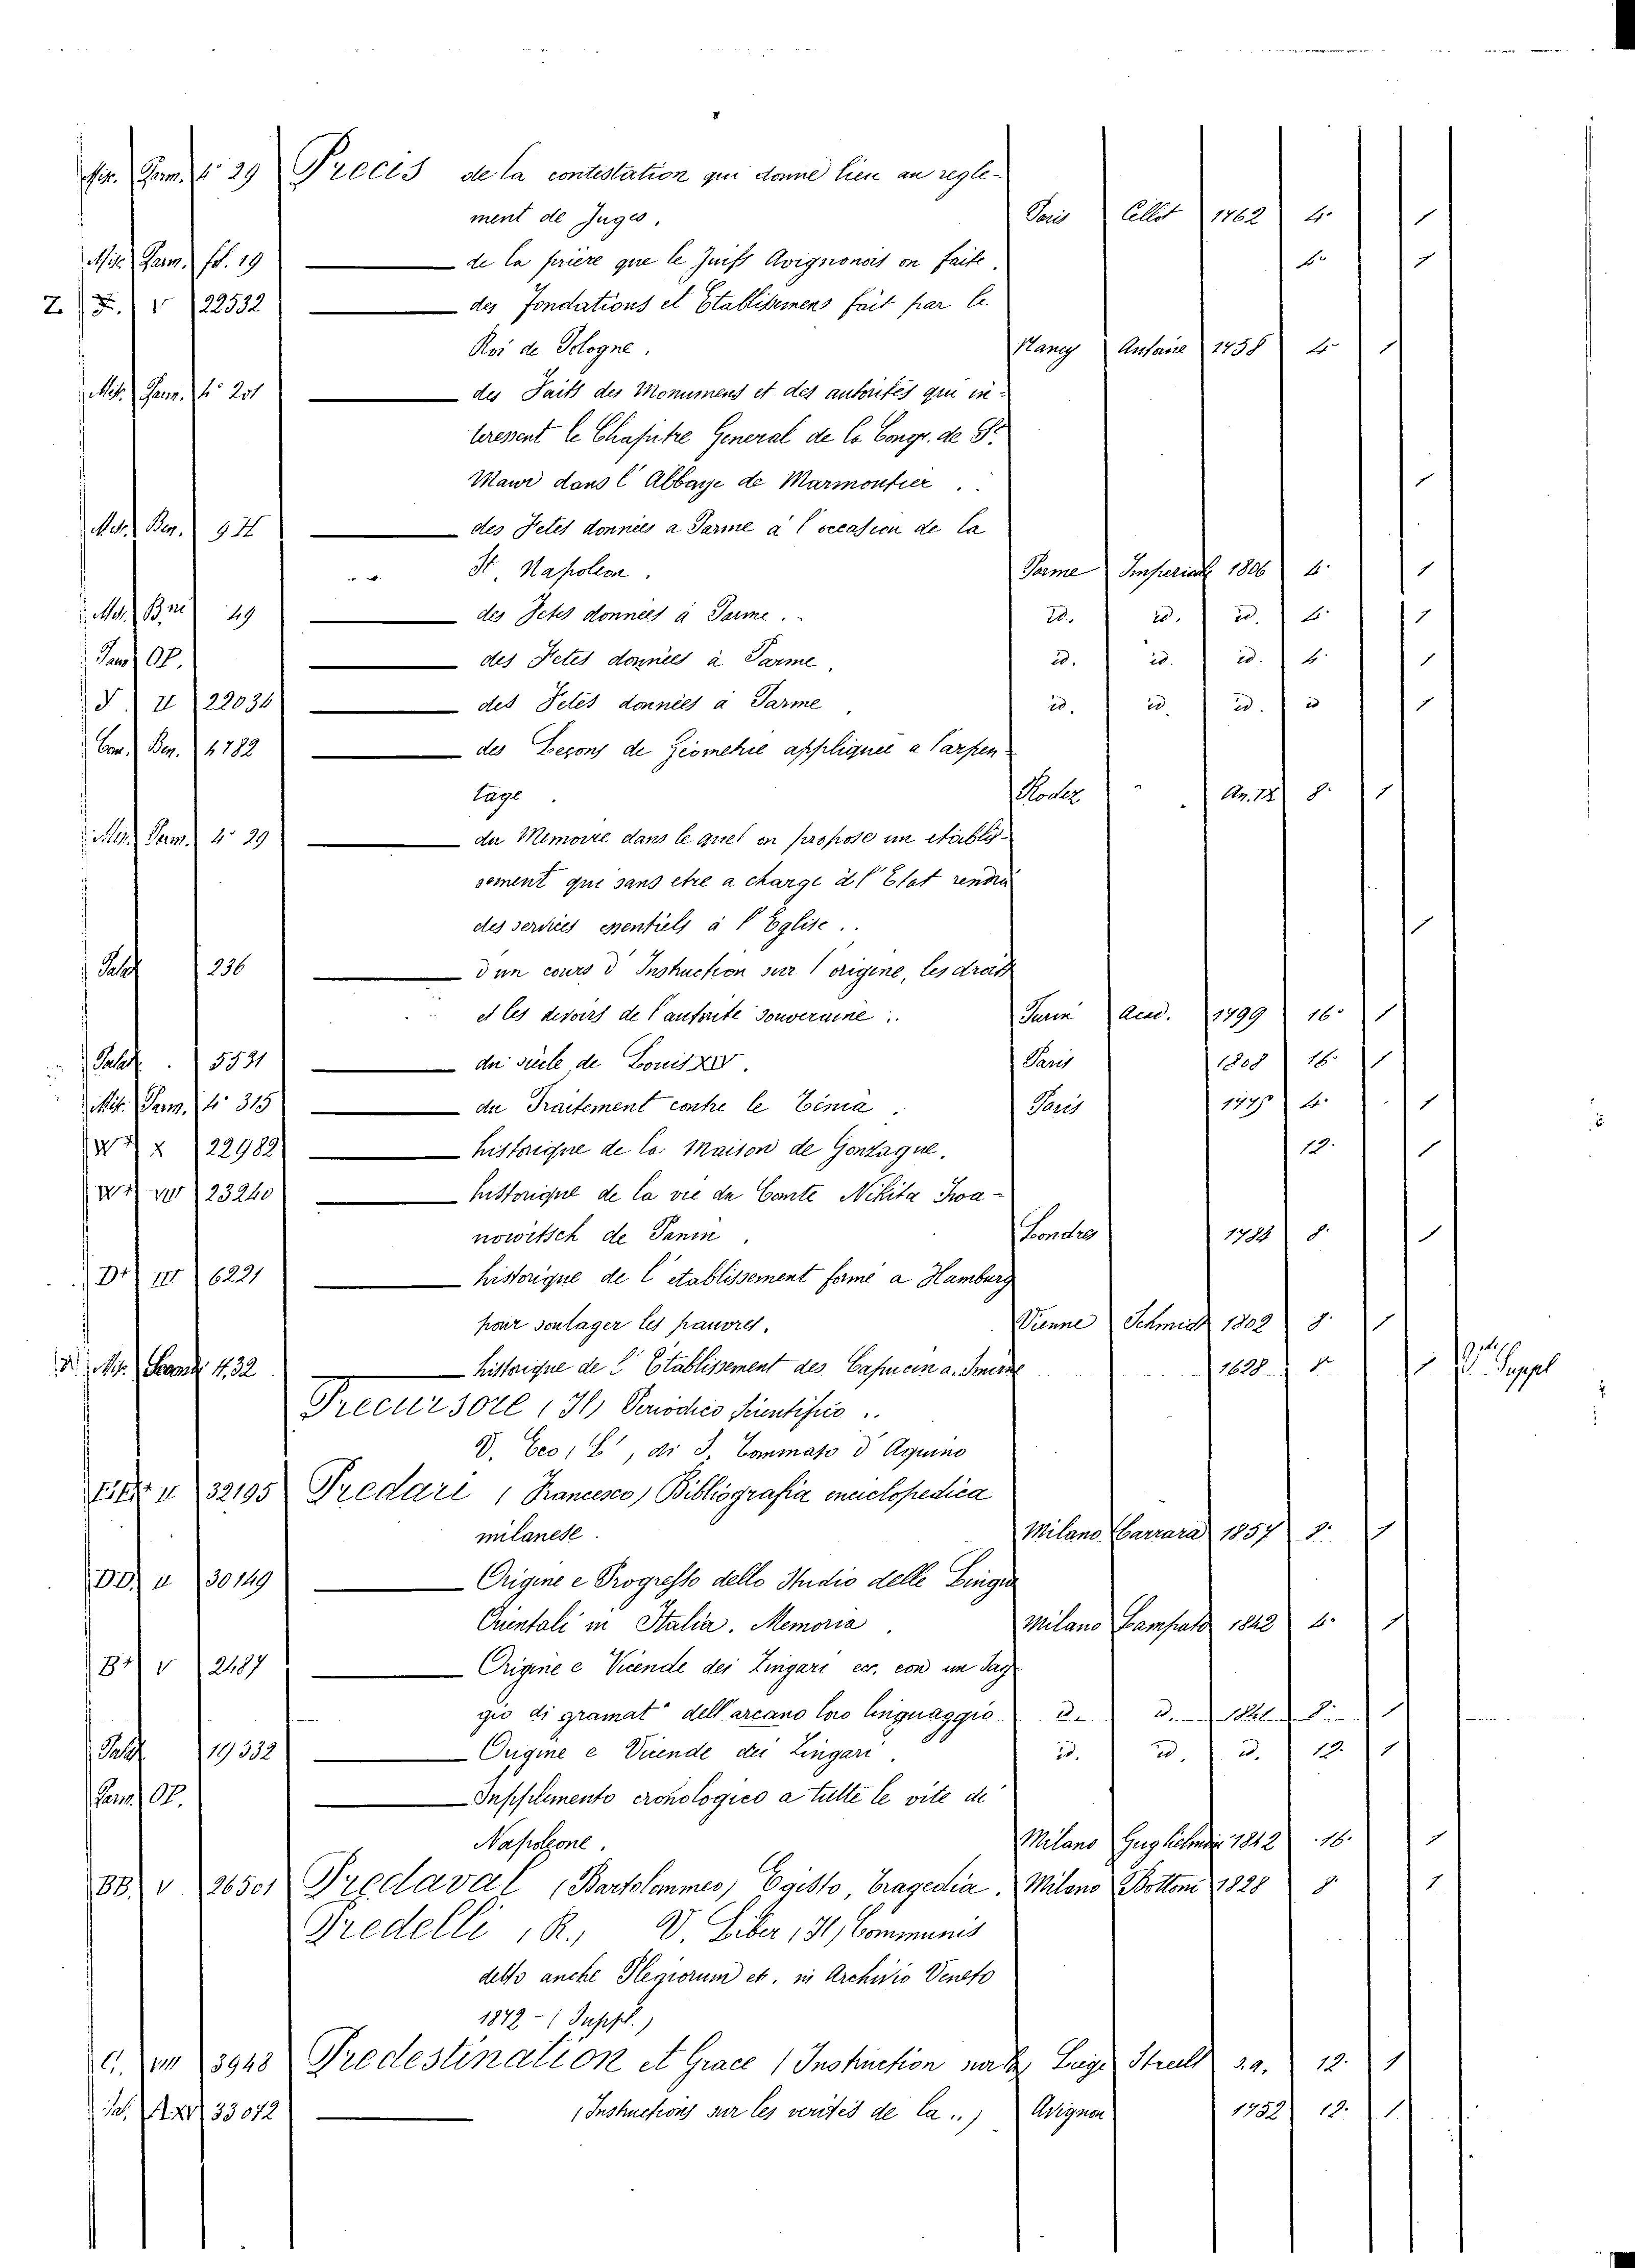 Parm. 4° 29 Precis de la contestation qui donne lieu au regle-
ment de Juges. Paris Cellot 1762 4° 1
Mis. Parm. fol. 19 — de la prière que le Juifs Avignonois on faite. 1
Z. F. V 22532 — des fondations et Etablisemens fait par le
Roi de Pologne. Nancy Antoine 1758 4° 1
Mis. Parm. 4° 201 — des Faits des Monumens et des autorités qui in-
teressent le Chapitre General de la Congr. de St
Maur dans l'Abbaye de Marmoutier. 1
Mis. Ben. 9 — des Fetes données a Parme à l'occasion de la
St. Napoleon. Parme Imperiale 1806 4° 1
Mis. Bne 49 — des Fetes données à Parme. id. id. id. 4° 1
Parm. OP. — des Fetes données à Parme, id. id. id. 4° 1
22034 — des Fetes données à Parme, id. id. id. 1
Con. Ben. 4782 — des Leçons de Géometrie appliquée a l'arpen-
tage. Rodez An. 12 8° 1
Mis. Parm. 4° 29 — du Memoire dans lequel on propose un etablis-
sement qui sans etre a charge à l'Etat rendra
des services essentiels à l'Eglise. 1
Palat. 236 — d'un cours d'Instruction sur l'origine, les droits
et les devoirs de l'autorité souveraine. Turin Acad. 1799 16° 1
Palat. 5531 — du siècle de Louis XIV. Paris 1808 16° 1
Mis. Parm. 4° 315 — du Traitement contre le Tenia. Paris 1775 4° 1
X 22982 — historique de la Maison de Gonzague. 12° 1
VIII 23240 — historique de la vie du Comte Nikita Iwa-
nowitsch de Panin. Londres 1784 8° 1
D+ III 6221 — historique de l'etablissement formé a Hamburg
pour soulager les pauvres. Vienne Schmidt 1802 8° 1
Mis. 4.32 — historique de l'Etablissement des Capucin a Smirne 1628 1 Suppl
Precursore (Il) Periodico Scientifico..
V. Eco, L', di S. Tommaso d'Aquino
II 32195 Predari (Francesco) Bibliografia enciclopedica
milanese. Milano Carrara 1857 8° 1
DD. II 30149 — Origine e Progresso dello Studio delle Lingue
Orientali in Italia. Memoria. Milano Lampato 1842 4° 1
B+ V 2487 — Origine e Vicende dei Zingari ec. con un Sag
gio di gramat° dell'arcano loro linguaggio 1841 8° 1
Palat. 19332 — Origine e Vicende dei Zingari. id. id. id. 12° 1
Parm. OP. — Supplemento cronologico a tutte le vite di
Napoleone. Milano Guglielmini 1842 16° 1
BB. V 26501 Predaval (Bartolommeo) Egisto, Tragedia. Milano Bottoni 1828 8° 1
Predelli (R.) V. Liber (Il) Communis
detto anche Plegiorum et. in Archivio Veneto
1872 - (Suppl.)
C. VIII 3948 Predestination et Grace (Instruction sur la) Liege Streel s.a. 12° 1
33072 — (Instructions sur les verités de la..) Avignon 1752 12° 1